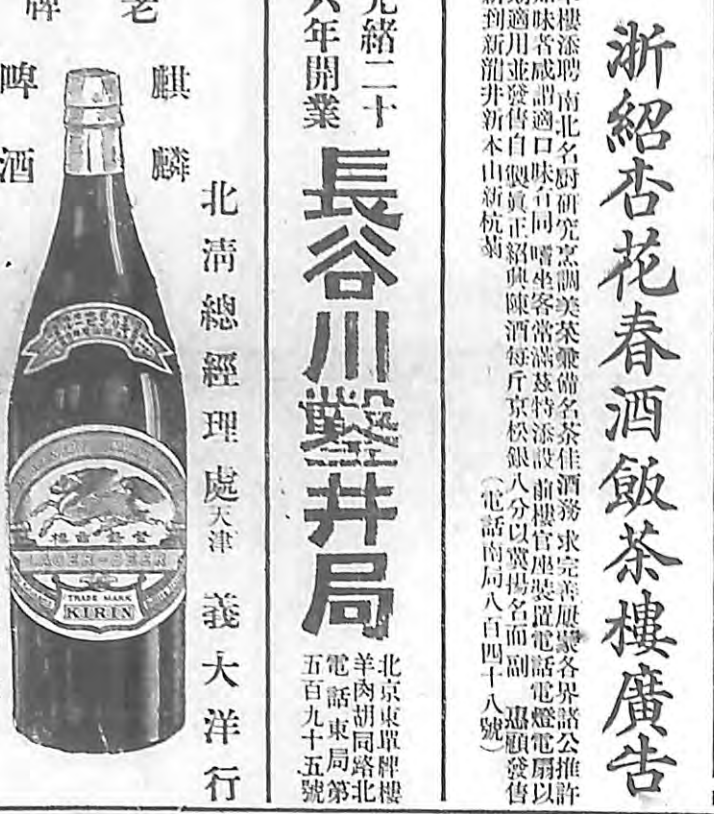 浙紹杏花春酒飯茶樓廣告
樓添聘南北名厨研究烹調美菜兼備名茶佳酒務求完善屢蒙各界諸公推許
味者咸謂適口味合同嗜坐客常滿茲特添設前樓官座裝置電話電燈電扇以
適用並發售自製眞正紹興陳酒每斤京松銀八分以冀揚名而副惠顧發售
到新龍井新本山新杭菊
（電話南局八百四十八號）
光緒二十
六年開業
長谷川鑿井局
北京東單牌樓
羊肉胡同路北
電話東局第
五百九十五號
北淸總經理處天津義大洋行
老牌
麒麟
啤酒
LAGER-BEER
TRADE MARK
KIRIN